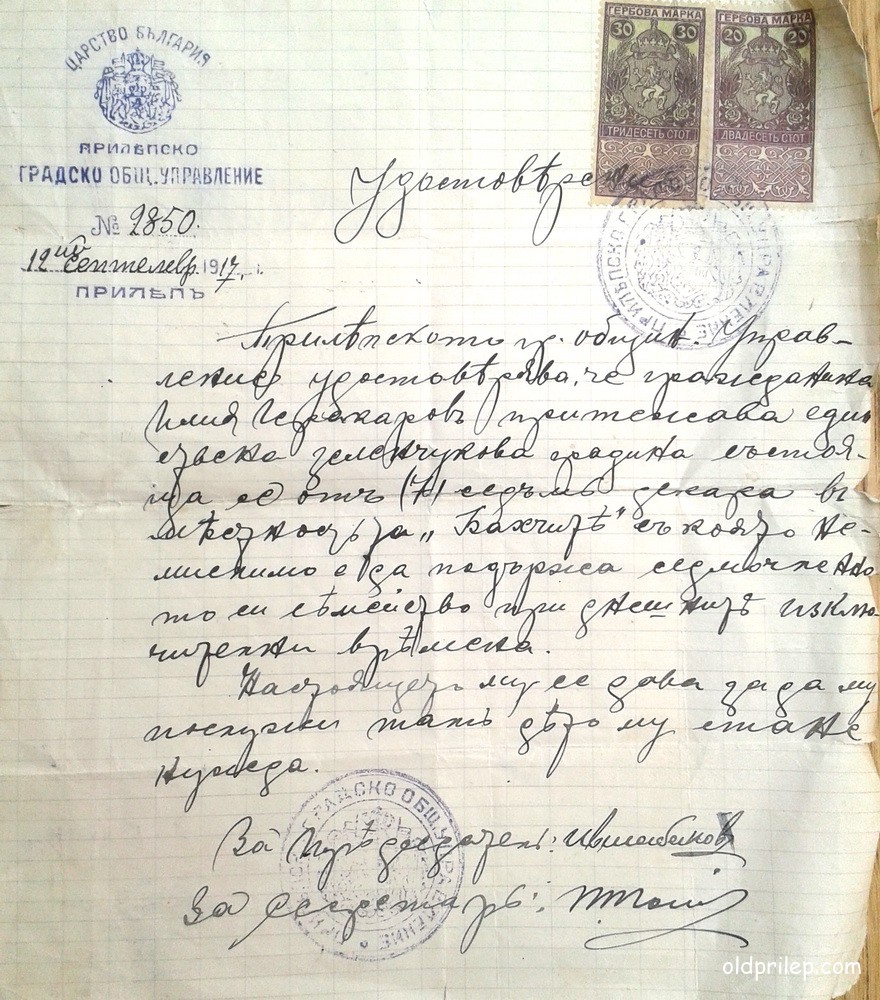 ЦАРСТВО БЪЛГАРИЯ
ПРИЛѢПСКО
ГРАДСКО ОБЩ. УПРАВЛЕНИЕ
№ 2850.
12ий Септемвр. 1917.
ПРИЛѢПЪ
ГЕРБОВА МАРКА
30 30
ТРИДЕСЕТЬ СТОТ
ГЕРБОВА МАРКА
20 20
ДВАДЕСЕТЬ СТОТ
Удостовѣрение
Прилѣпското гр. общин. Управ-
ление удостовѣрява, че гражданина
Илия притежава един
зеленчукова градина състоя-
ща се отъ (7) седъмъ декара въ
мѣстностьта „Бахчитѣ" съ която не-
мислимо е да подържа седмочленно
то си сѣмейство при днешнитѣ изклю-
чителни врѣмена.
Настоящето му се дава за да му
послужи тамъ дѣто му стане
нужда.
За прѣдседатель:
За секретарь:
oldprilep.com